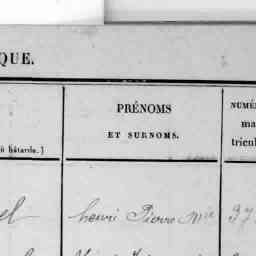 QUE.
PRÉNOMS
ET SURNOMS.
NUMÉR
ma
tricul
bâtarde.]
el
henri Pierre Mie
37